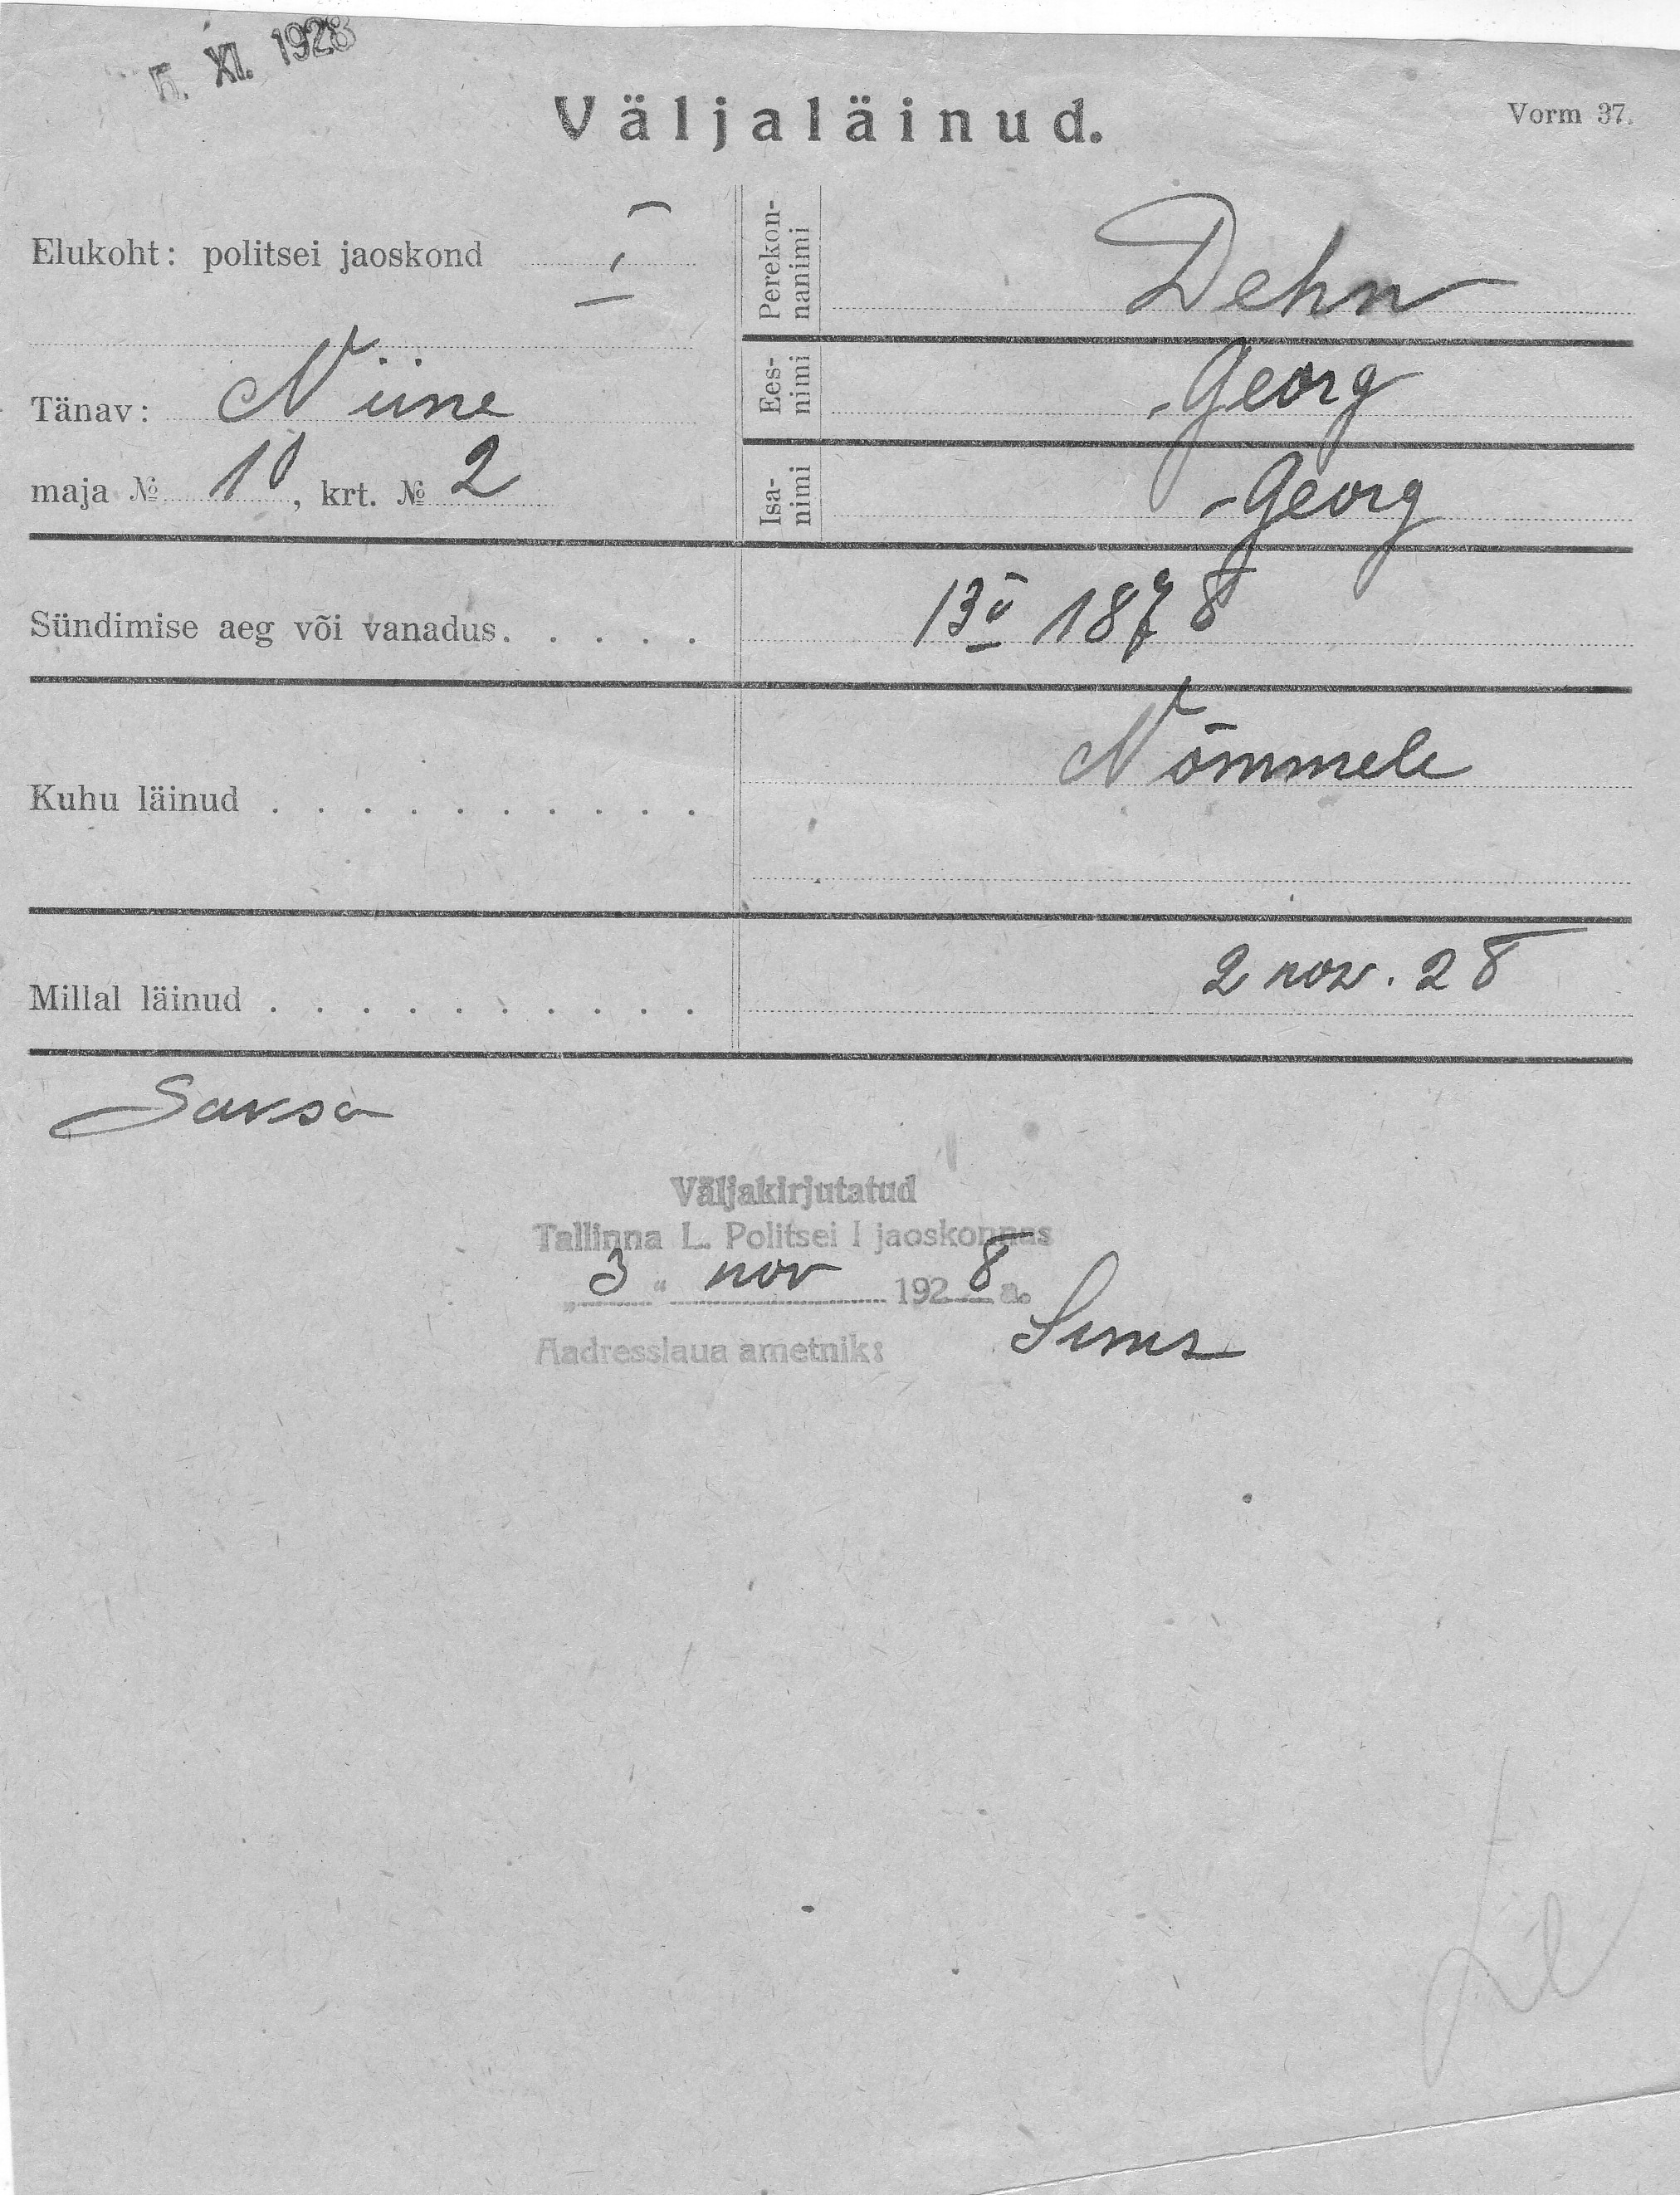 5. XI. 1928
Väljaläinud.
Vorm 37.
Elukoht: politsei jaoskond I
Tänav: Niine
maja № 10, krt. № 2
Perekon-
nanimi
Dehn
Ees-
nimi
Georg
Isa-
nimi
Georg
Sündimise aeg või vanadus. . . . . 13 II 1878
Kuhu läinud . . . . . . . . . . Nõmmele
Millal läinud . . . . . . . . . . 2 nov. 28
Saksa
Väljakirjutatud
Tallinna L. Politsei I jaoskonnas
„3“ nov 1928 a.
Aadresslaua ametnik: